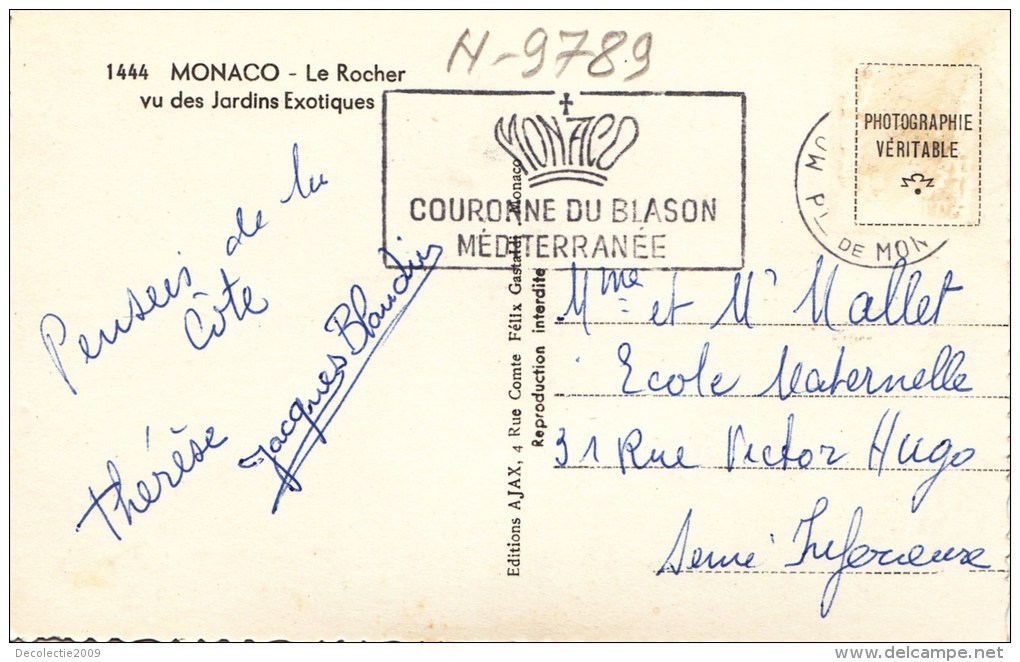 H-9789
1444 MONACO - Le Rocher
vu des Jardins Exotiques
MONACO
COURONNE DU BLASON
MÉDITERRANÉE
PHOTOGRAPHIE
VÉRITABLE
DE MON
Pensees de la
Côte
Thérèse
Jacques Blaudin
Editions AJAX, 4 Rue Comte Félix Gastaldi, Monaco
Reproduction interdite
Mme et Mr Mallet
Ecole Maternelle
31 Rue Victor Hugo
Inferieure
Decolectie2009
delcampe.net